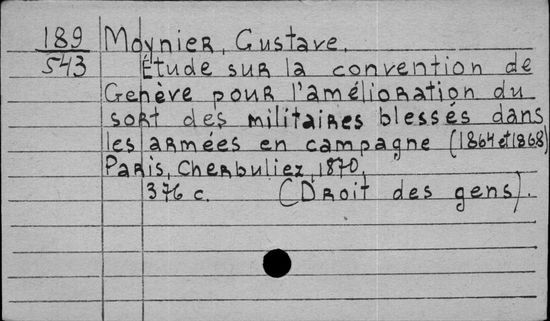 189 Moynier, Gustave.
543 Étude sur la convention de
Genève pour l'amélioration du
sort des militaires blessés dans
les armées en campagne (1864 et 1868)
Paris, Cherbuliez, 1870.
376 c. (Droit des gens).